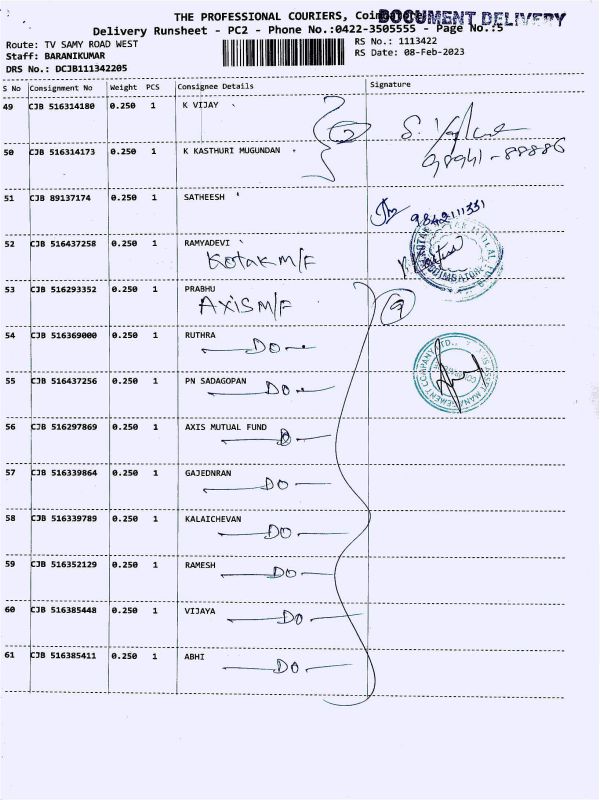 THE PROFESSIONAL COURIERS, Coimbatore
DOCUMENT DELIVERY
Delivery Runsheet - PC2 - Phone No.:0422-3505555 - Page No.:5
Route: TV SAMY ROAD WEST
RS No.: 1113422
Staff: BARANIKUMAR
RS Date: 08-Feb-2023
DRS No.: DCJB111342205
S No Consignment No Weight PCS Consignee Details Signature
49 CJB 516314180 0.250 1 K VIJAY
50 CJB 516314173 0.250 1 K KASTHURI MUGUNDAN
98941-88886
51 CJB 89137174 0.250 1 SATHEESH
9842111331
52 CJB 516437258 0.250 1 RAMYADEVI
Kotak M/F
53 CJB 516293352 0.250 1 PRABHU
AXIS M/F
9
54 CJB 516369000 0.250 1 RUTHRA
DO
55 CJB 516437256 0.250 1 PN SADAGOPAN
DO
56 CJB 516297869 0.250 1 AXIS MUTUAL FUND
DO
57 CJB 516339864 0.250 1 GAJEDNRAN
DO
58 CJB 516339789 0.250 1 KALAICHEVAN
DO
59 CJB 516352129 0.250 1 RAMESH
DO
60 CJB 516385448 0.250 1 VIJAYA
DO
61 CJB 516385411 0.250 1 ABHI
DO